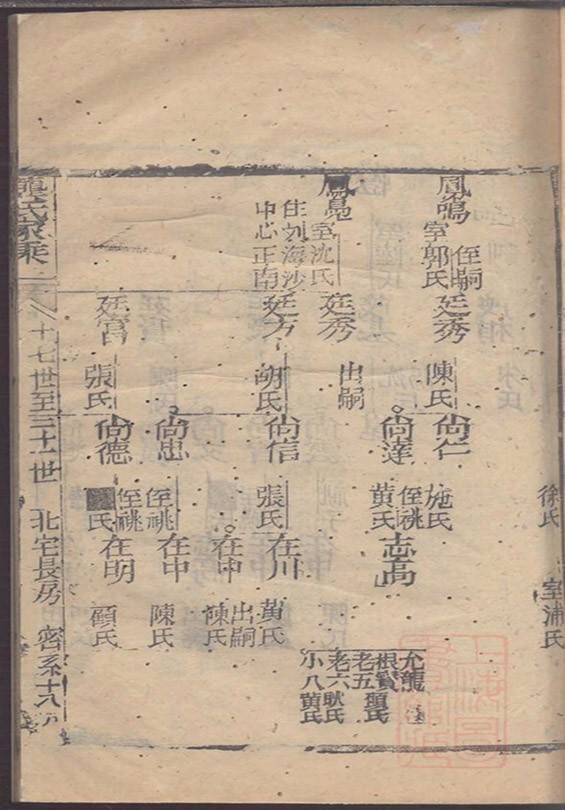 徐氏
室浦氏
鳳鳴
室郭氏
侄嗣
廷秀
陳氏
尚仁
施氏
尚達
侄祧
黃氏
志高
允龍
根
老五
老六耿氏
小八黃氏
室沈氏
住刘海沙
中心正南
廷秀
出嗣
廷方
胡氏
尚信
張氏
在川
黃氏
在中
出嗣
陳氏
尚忠
侄祧
在中
陳氏
廷富
張氏
尚德
侄祧
氏
在明
顧氏
氏家乘
十七世至三十一世
北宅長房
密系十八